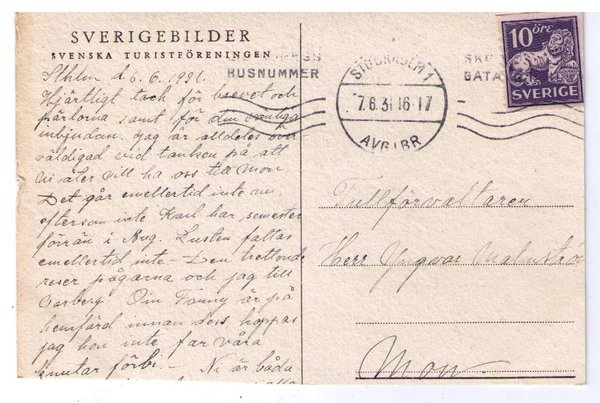 SVERIGEBILDER
SVENSKA TURISTFÖRENINGEN
Sthlm d 6. 6. 1931.
Hjärtligt tack för brevet och
pärlorna samt för din vänliga
inbjudan. Jag är alldeles över
väldigad vid tanken på att
ni åter vill ha oss till Mon.
Det går emellertid inte an,
eftersom inte Karl har semester
förrän i Aug. Lusten fattas
emellertid inte. – Den
reser pågarna och jag till
Varberg. Om Fanny är på
hemfärd innan dess hoppas
jag hon inte far våra
knutar förbi. – Ni är båda
HUSNUMMER
STOCKHOLM 1
7.6.31.16-17
AVG. BR
GATA
10 ÖRE
SVERIGE
Tullförvaltaren
Herr Yngvar
Mon.